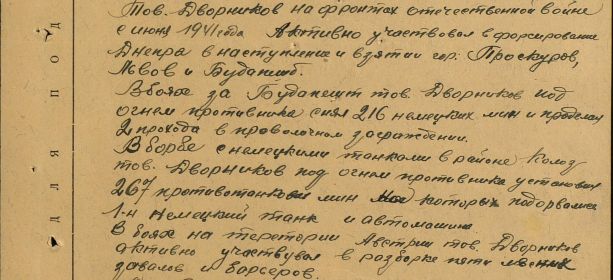 Тов. Дворников на фронтах отечественной войне
с июня 1941 года Активно участвовал в форсирование
Днепра в наступление и взятии гор: Проскуров,
Львов и Будапешт.
В боях за Будапешт тов. Дворников под
огнем противника снял 216 немецких мин и проделал
2 прохода в проволочном заграждении.
В борьбе с немецкими танками в районе
тов. Дворников под огнем противника установил
267 противотанковых мин на которых подорвались
1-н немецкий танк и автомашина.
В боях на територии Австрии тов. Дворников
активно участвовал в разборке пяти
завалов и барьеров.
ДЛЯ ПОД